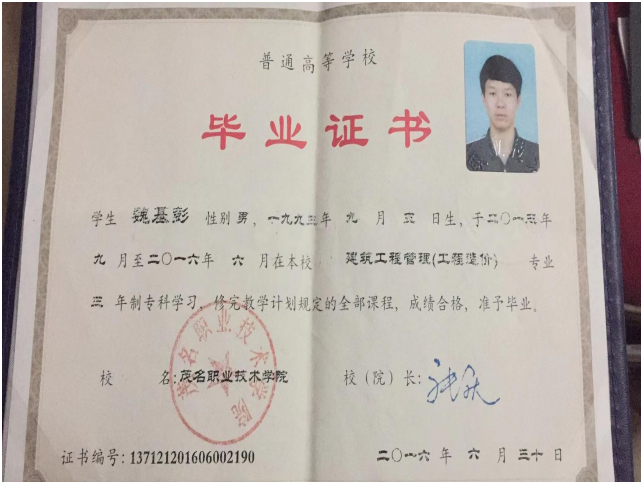 普通高等学校
毕业证书
学生 魏基彭 性别 男，一九九三年 九 月 五 日生，于二〇一三年
九 月至二〇一六年 六 月在本校 建筑工程管理(工程造价) 专业
三 年制专科学习，修完教学计划规定的全部课程，成绩合格，准予毕业。
校 名:茂名职业技术学院 校（院）长:
茂名职业技术学院
证书编号: 137121201606002190 二〇一六 年 六 月 三十 日